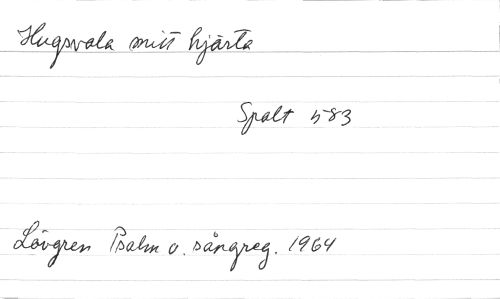 Hugsvala mitt hjärta
Spalt 583
Lövgren Psalm o. sångreg. 1964